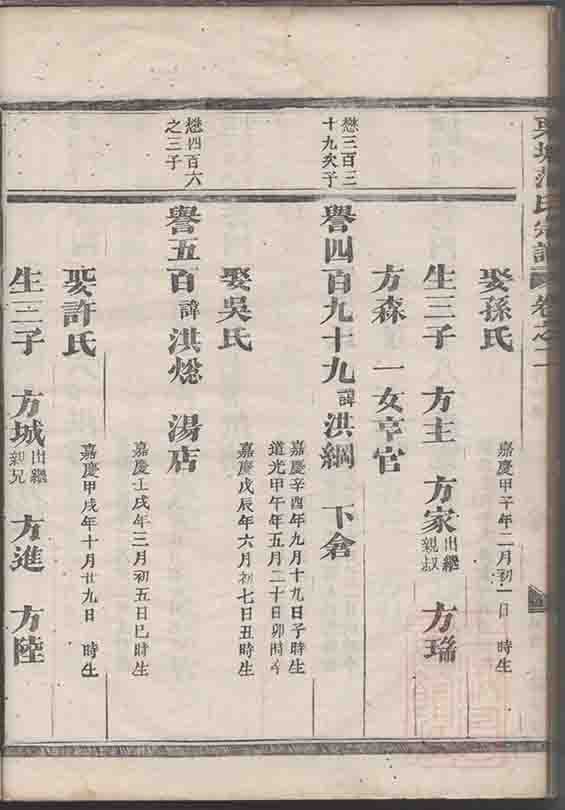 宗譜 卷之二
娶孫氏 嘉慶甲子年二月初一日 時生
生三子 方主 方家 出繼親叔 方瑞
方森 一女亭官
懋三百三十九次子
譽四百九十九 諱 洪綱 下倉 嘉慶辛酉年九月十九日子時生
道光甲午年五月二十日卯時
娶吳氏 嘉慶戊辰年六月初七日丑時生
懋四百六之三子
譽五百 諱 洪㷓 湯店 嘉慶壬戌年三月初五日巳時生
娶許氏 嘉慶甲戌年十月廿九日 時生
生三子 方城 出繼親兄 方進 方陸